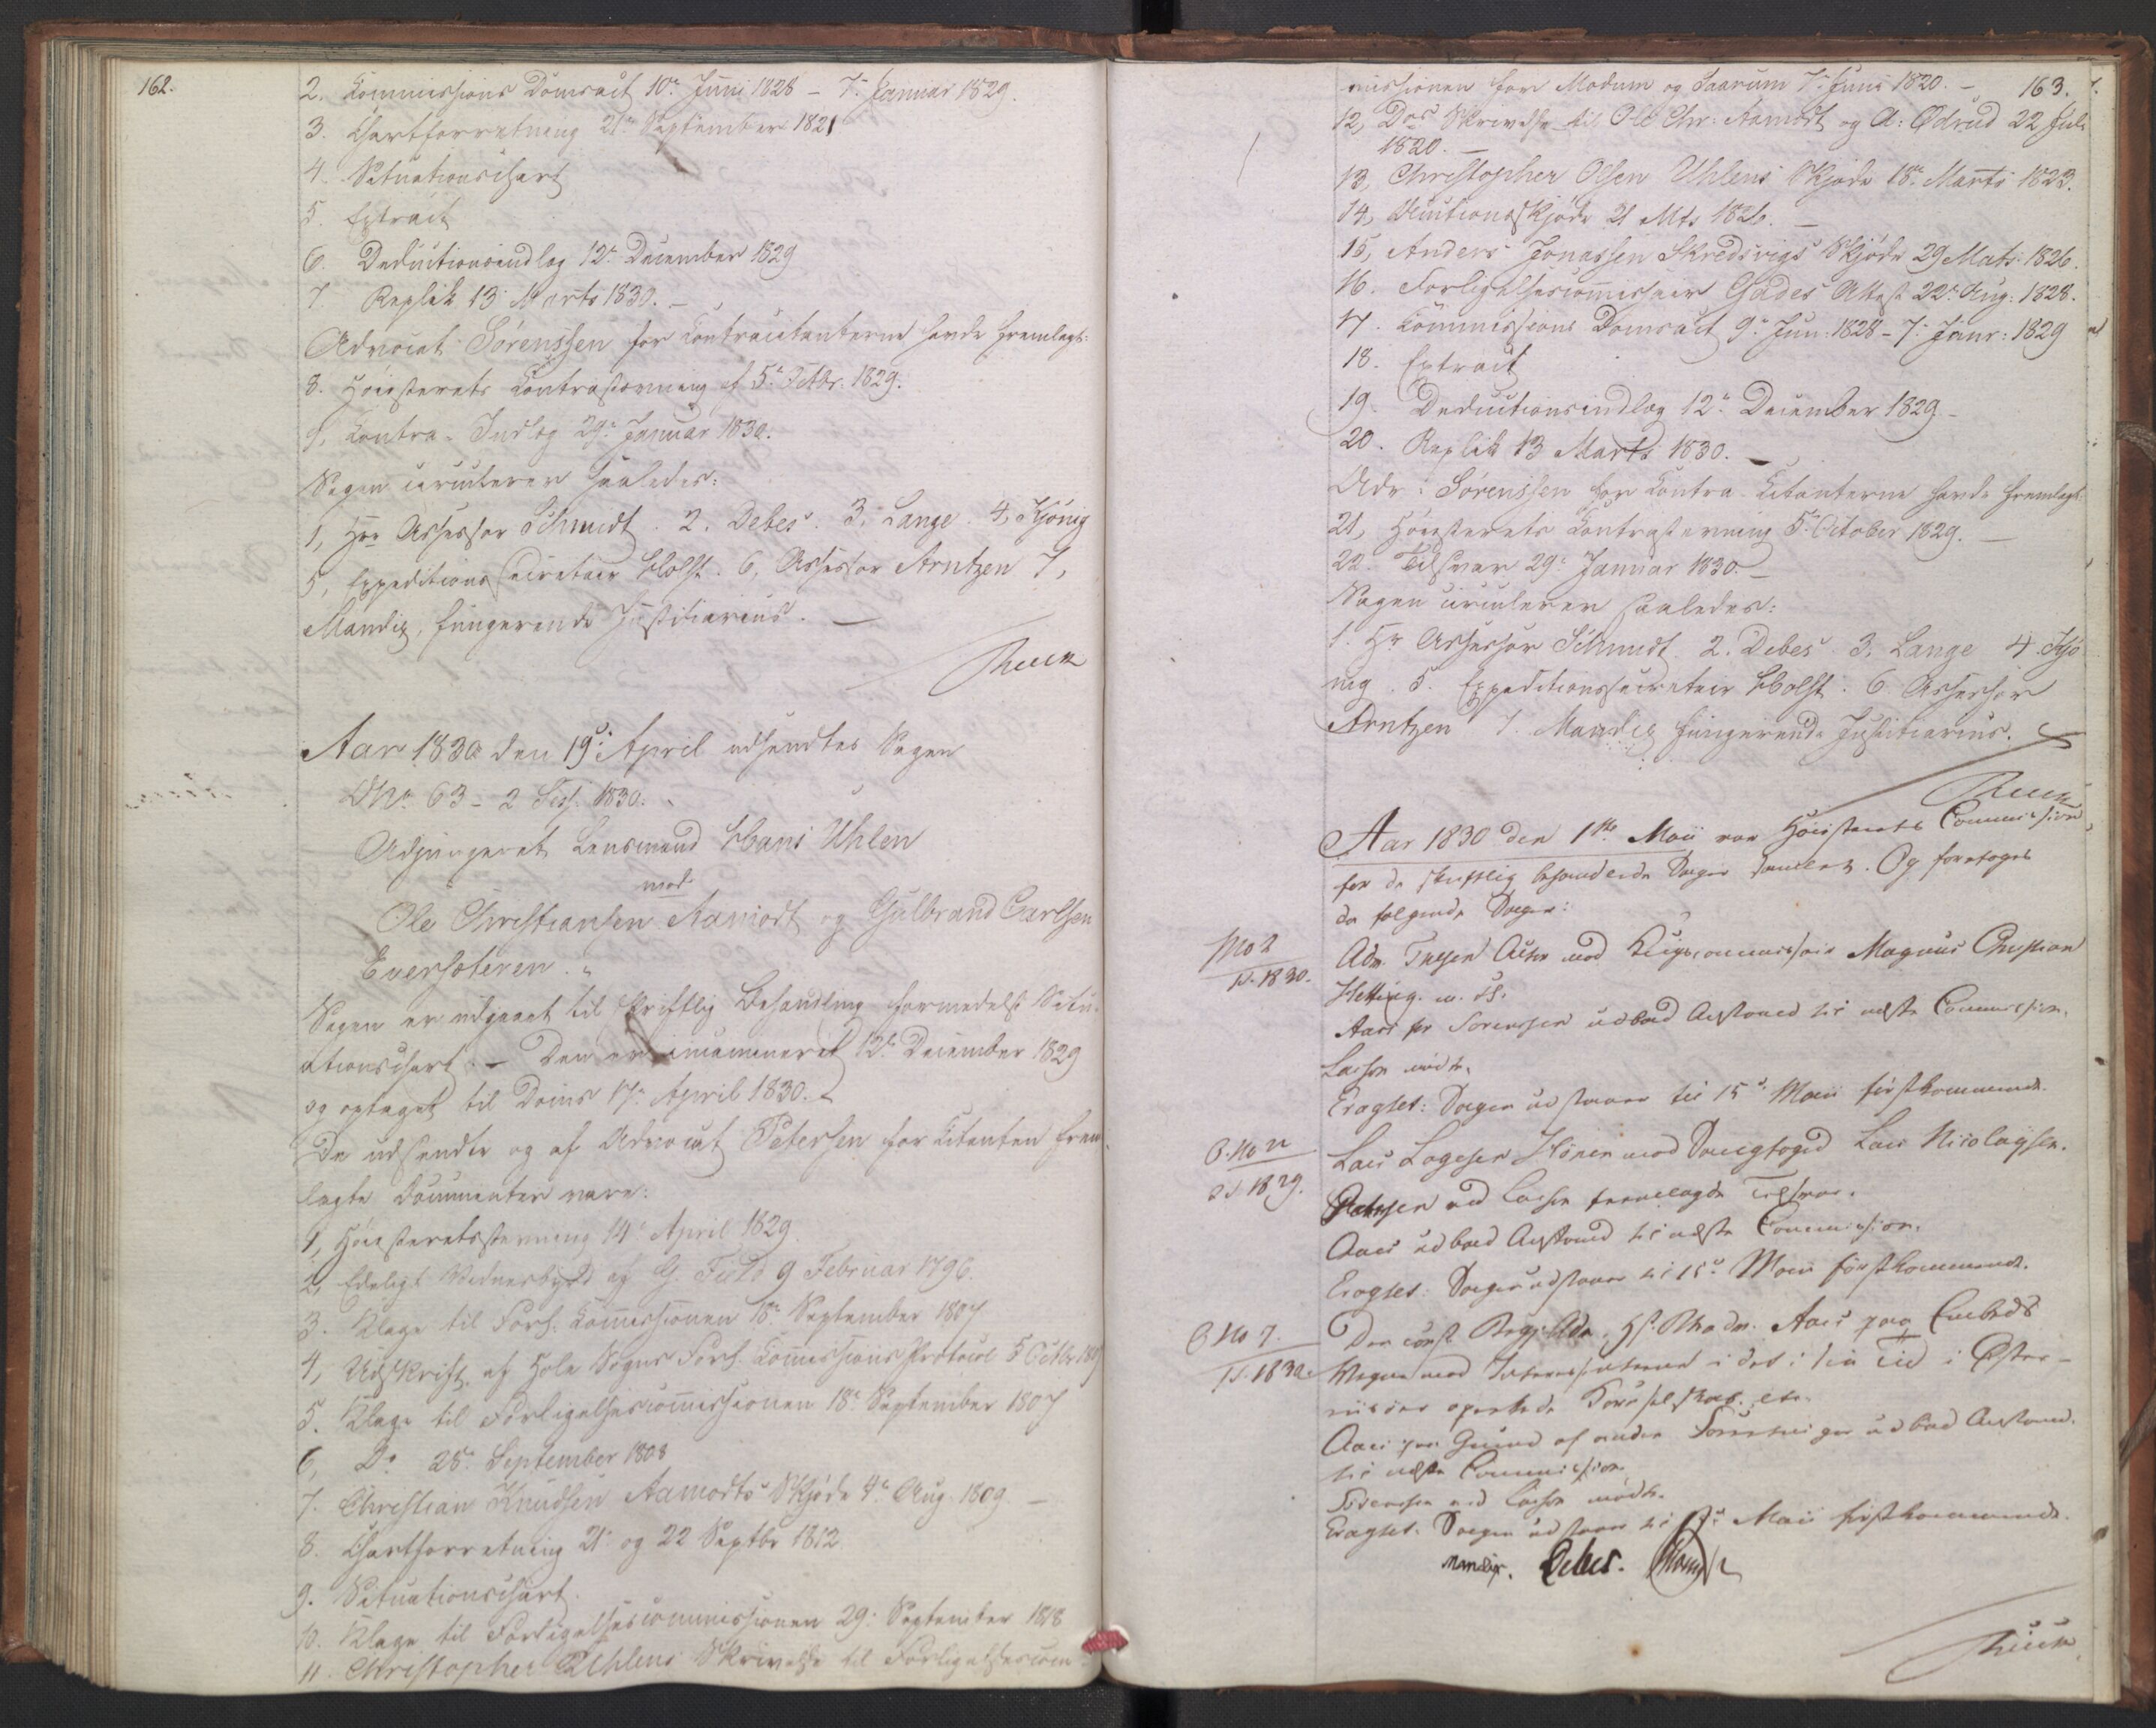 162.
2. Commissions Domsact 10de Juni 1828 – 7de Januar 1829.
3. Chartforretning 21de September 1821
4. Situationschart
5. Extract
6. Deductionsindlæg 12te December 1829
7. Replik 13 Marts 1830. –
Advocat Sørenssen for Contracitanterne havde fremlagt:
8. Høiesterets Contrastævning af 5te Octbr. 1829.
9. Contra-Indlæg 29de Januar 1830.
Sagen circulerer saaledes:
1, Hrr Assessor Schmidt. 2. Debes. 3. Lange. 4, Kjönig
5, Expeditionssecretair Holst. 6, Assessor Arntzen 7,
Mandix, fungerende Justitiarius. –
Aar 1830 den 19de April udsendtes Sagen
No 63 – 2 Sess. 1830.
Adjungeret Lensmand Hans Uhlen
mod
Ole Christiansen Aamodt og Gulbrand Carlsen
Eversøteren.
Sagen er udgaaet til skriftlig Behandling formedelst Situ-
ationschart. – Den er incamineret 12te December 1829
og optaget til Doms 17de April 1830.
De udsendte og af Advocat Petersen for Citanten frem-
lagte Documenter vare:
1, Høiesteretsstevning 14de April 1829.
2, Edeligt Vidnesbyrd af G. Feld 9 Februar 1796.
3. Klage til Forl. Commissionen 18de September 1807
4, Udskrift af Hole Sogns Forl. Commissions Protocol 5 Octbr 1807
5. Klage til Forligelsescommissionen 18de September 1807
6, Do 28de September 1808
7. Christian Knudsen Aamodts Skjøde 4de Aug. 1809. –
8. Chartforretning 21de og 22 Septbr 1812
9. Situationschart.
10. Klage til Forligelsescommissionen 29de September 1818
11. Christopher Uhlens Skrivelse til Forligelsescom-
missionen for Modum og Snarum 7de Juni 1820. –
163.
12, Des Skrivelse til Ole Chr. Aamodt og A. Ødrud 22 Juli
1820. –
13, Christopher Olsen Uhlens Skjøde 18de Marts 1823.
14, Auctionsskjøde 21 Mts 1826. –
15, Anders Jonassen Skredsvigs Skjøde 29 Mats 1826.
16. Forligelsescommissair Gades Attest 22de Aug: 1828.
17. Commissions Domsact 9de Jun: 1828 – 7de Janr: 1829
18. Extract
19. Deductionsindlæg 12te December 1829 –
20. Replik 13 Marts 1830. –
Adv: Sørenssen for Contra-Citanterne havde fremlagt:
21, Høiesterets Contrastevning 5te October 1829. –
22. Tilsvar 29de Januar 1830. –
Sagen circulerer saaledes:
1. Hr Assessor Schmidt 2. Debes 3. Lange 4. Kjö
nig. 5. Expeditionssecretair Holst. 6. Assessor
Arntzen 7. Mandix fungerende Justitiarius.
Aar 1830 den 1ste Maii var Høiesterets Commission
for de skriftlig behandlede Sager samlet. Og foretoges
da følgende Sager:
No 2
1 S. 1830.
Adv. Actor mod Krigscommissair Magnus Christian
Hetting. m. fl.
Aars for Sorenssen udbad Anstand til næste Commission.
Lasson mødte.
Eragtet: Sagen udstaaer til 15de Maii førstkommende.
2 S 1829.
Lars mod Lars Nicolaysen.
Petersen ved Lasson fremlagde Tilsvar.
Aars udbad Anstand til næste Commission.
Eragtet: Sagen udstaaer til 15de Maii førstkommende.
No 7.
1 S. 1830.
Den const. Regj. Adv. Aars paa Embeds
Vegne mod Interessenterne i det i sin Tid i Øster-
riisøer oprettede etc.
Aars paa Grund af andre Forretninger udbad Anstand
til næste Commission.
Sorenssen ved Lasson mødte.
Eragtet. Sagen udstaaer til 15de Maii førstkommende.
Mandix. Debes.